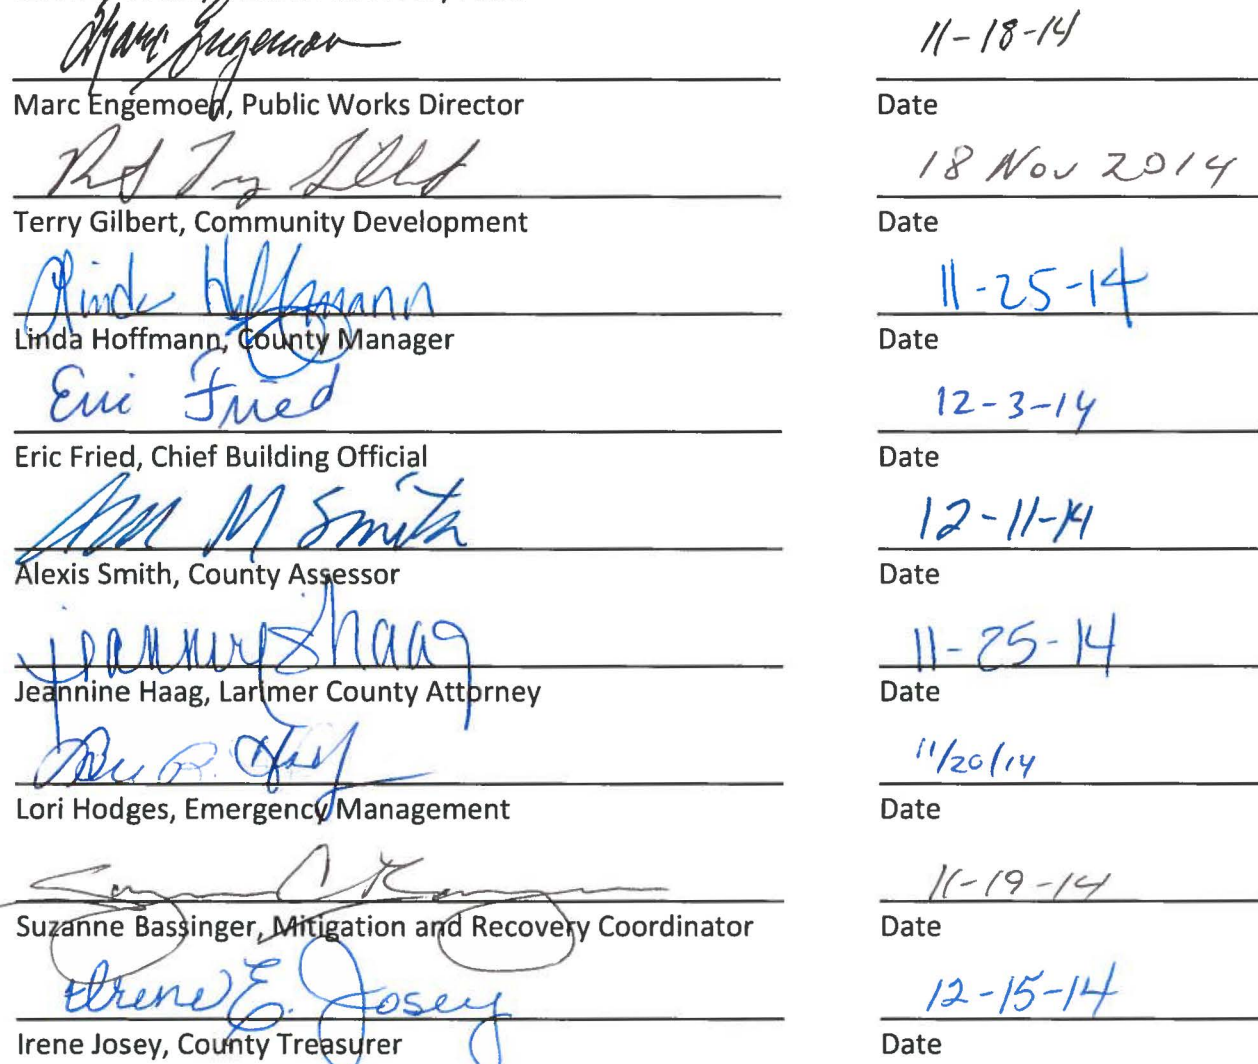 Marc Engemoen 11-18-14
Marc Engemoen, Public Works Director Date
18 Nov 2014
Terry Gilbert, Community Development Date
Linda Hoffmann 11-25-14
Linda Hoffmann, County Manager Date
Eric Fried 12-3-14
Eric Fried, Chief Building Official Date
M Smith 12-11-14
Alexis Smith, County Assessor Date
Jeannine Haag 11-25-14
Jeannine Haag, Larimer County Attorney Date
Lori R. 11/20/14
Lori Hodges, Emergency Management Date
11-19-14
Suzanne Bassinger, Mitigation and Recovery Coordinator Date
Irene E. Josey 12-15-14
Irene Josey, County Treasurer Date